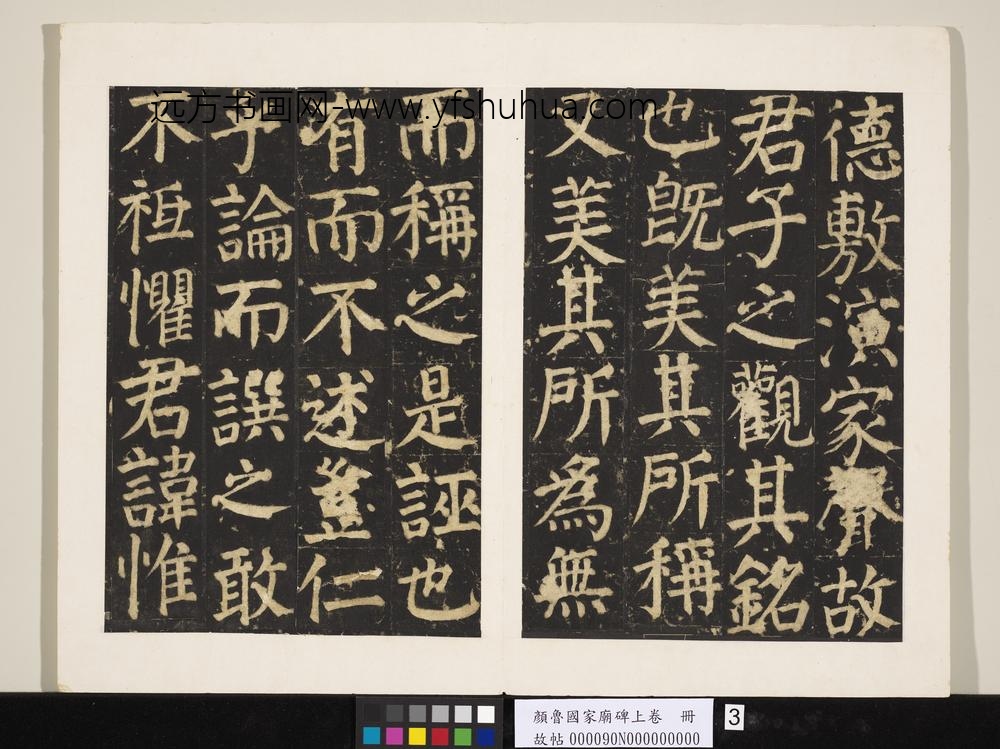 远方书画网-www.yfshuhua.com
德敷演家聲故
君子之觀其銘
也既美其所稱
又美其所為無
而稱之是誣也
有而不述豈仁
乎論而譔之敢
不祗懼君諱惟
顏魯國家廟碑上卷 冊
故帖 000090N000000000
3